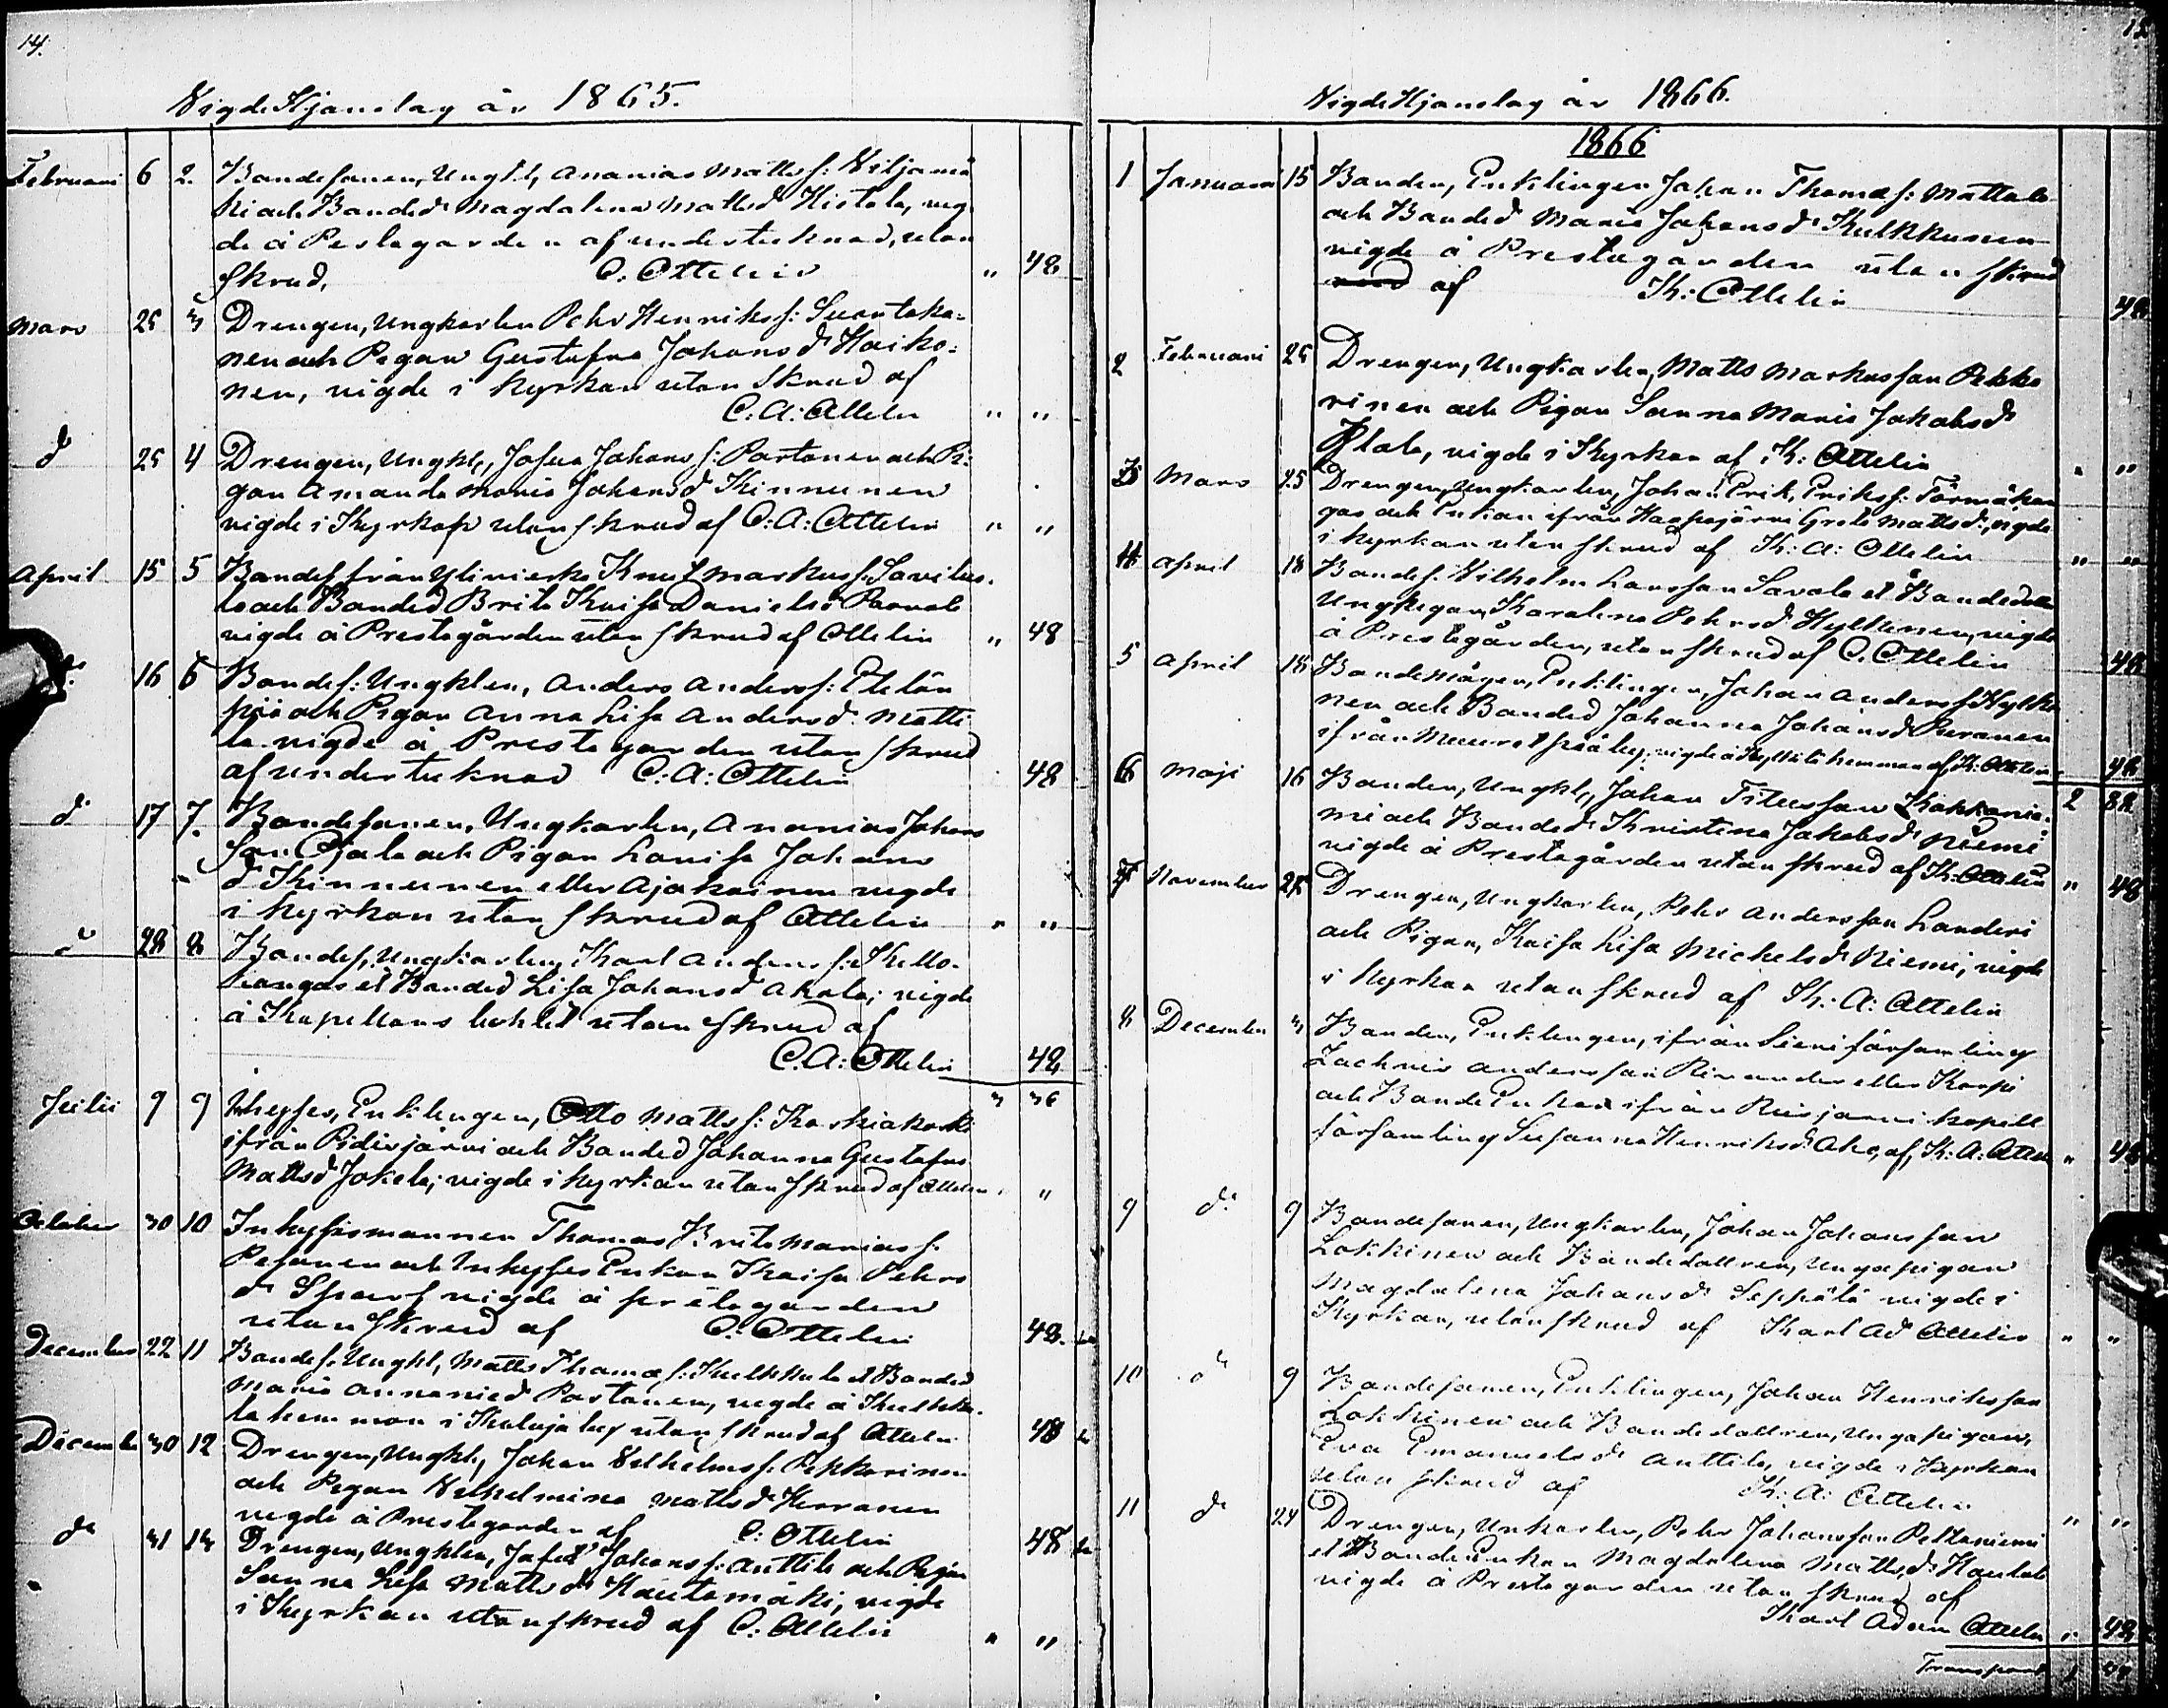 14.
Vigde Hjonelag år 1865.
Februari 6 2. Bondesonen, Ungkl, Ananias Mattsf: Viljamaa
ki och Bonded Magdalena Mattsd Hietala, vig
de å Prestegården af undertecknad, utan
skrud. C. Ottelin " 48
Mars 25 3 Drengen, Ungkarlen Pehr Henriksf: Suontaka=
nen och Pigan Gustafva Johansdr Haiko=
nen, vigde i Kyrkan utan Skrud af
C: A: Ottelin " "
do 25 4 Drengen, Ungkl, Josua Johans f: Partanen och Pi=
gan Amanda Maria Johansd Kinnunen
vigde i Kyrkan utan skrud af C: A: Ottelin " "
April 15 5 Bondes från Ylivieska Knut Markusf. Savilus.
och Bonded Brita Kaisa Danielsd
vigde å Prestegården utan skrud af Ottelin " 48
do 16 6 Bondes: Ungklen, Anders Andersf: Etelän
pää och Pigan Anna Lisa Andersd. Matti
la vigde å Prestegården utan skrud
af undertecknad C: A: Ottelin 48
do 17 7. Bondesonen, Ungkarlen, Ananias Johans
son Ojala och Pigan Lovisa Johans
d Kinnunen eller Ajakainen vigde
i Kyrkan utan skrud af Ottelin " "
do 28 8 Bondes, Ungkarlen, Karl Anders f: Kello-
kangas et Bonded Lisa Johansd Ahola; vigde
å Kapellans bohlet utan skrud af
C. A: Ottelin 48
Julii 9 9 Inhyses, Enklingen, Otto Mattsf: Koskiakoski
ifrån Pidisjärvi och Bonded Johanna Gustafva
Mattsd Jokela; vigde i Kyrkan utan skrud af Ottelin "
October 30 10 Inhysismannen Thomas Brita Marias f.
Pesonen och Inhyses Enkan Kaisa Pehrs
dr Sparf vigde å prestegården
utan skrud af C: Ottelin 48.
December 22 11 Bondes. Ungkl, Matts Thomæ f: Kulkkula et Bonded
Maria Annanied Partanen, vigde å Kulkku
la hemman i Kalaja by utan skrud af Ottelin 48
December 30 12 Drengen, Ungkl, Johan Vilhelms f. Pekkarinen
och Pigan Vilhelmina Mattsdr Herranen
vigde å Prestegården af C: Ottelin 48
do 31 13 Drengen, Ungklen, Jafet Johans f: Anttila och Pigan
Sanna Lisa Mattsdr Hautamäki, vigde
i Kyrkan utan skrud af C: Ottelin " "
15
Vigde Hjonelag år 1866.
1866
1 Januari 15 Bonden, Enklingen Johan Thomæ f: Mattala
och Bonded Maria Johansdr Kulkkunen
vigde å Prestegården utan skrud
af K: Ottelin 48
2 Februari 25 Drengen, Ungkarlen, Matts Markusson Pekka
rinen och Pigan Sanna Maria Jakobsdr
vigde i Kyrkan af K: Ottelin " "
3 Mars 25 Drengen, Ungkarlen, Johan Erik, Eriksf: Törmäkan
gas och Enkan ifrån Haapajärvi Greta Mattsdr, vigde
i Kyrkan utan skrud af K: A: Ottelin " "
4 April 18 Bondes. Vilhelm Larsson Savola et Bondedottr
Ungpigan Karolina Pehrsd Hylkinen, vigde
å Prestegården, utan skrud af C. Ottelin 48
5 April 18 Bondemågen, Enklingen, Johan Andersf Hylki
nen och Bonded Johanna Johansd Puranen
ifrån by, vigde å hemman af K: Ottelin 48
6 Maji 16 Bonden, Ungkl, Johan Titusson Kokkonie= 2 88
mi och Bonded Kristina Jakobsdr Niemi
vigde å Prestegården utan skrud af K: Ottelin " 48
7 November 25 Drengen, Ungkarlen, Pehr Andersson Landeri
och Pigan, Kaisa Lisa Michelsdr Niemi, vigde
i Kyrkan utan skrud af K: A: Ottelin
8 December 3 Bonden, Enklingen, ifrån Sievi församling
Zachris Andersson eller Korpi
och Bonde Enkan ifrån Reisjärvi kapell
församling Susanna Henriksd. Aho, af, K: A: Ottelin " 48
9 do 9 Bondesonen, Ungkarlen, Johan Johansson
Lokkinen och Bondedottren, Ungapigan
Magdalena Johansdr Seppälä vigde i
Kyrkan, utan skrud af Karl Ad Ottelin " "
10 do 9 Bondesonen, Enklingen, Johan Henriksson
Lokkinen och Bondedottren, Ungapigan,
Eva Emanuelsdr Anttila, vigde i Kyrkan
utan skrud af K: A: Ottelin " "
11 do 29 Drengen, Unkarlen, Pehr Johansson Peltoniemi
et Bonde Enkan Magdalena Mattsdr Hautala
vigde å Prestegården utan skrud af
Karl Adam Ottelin " 48
Transport